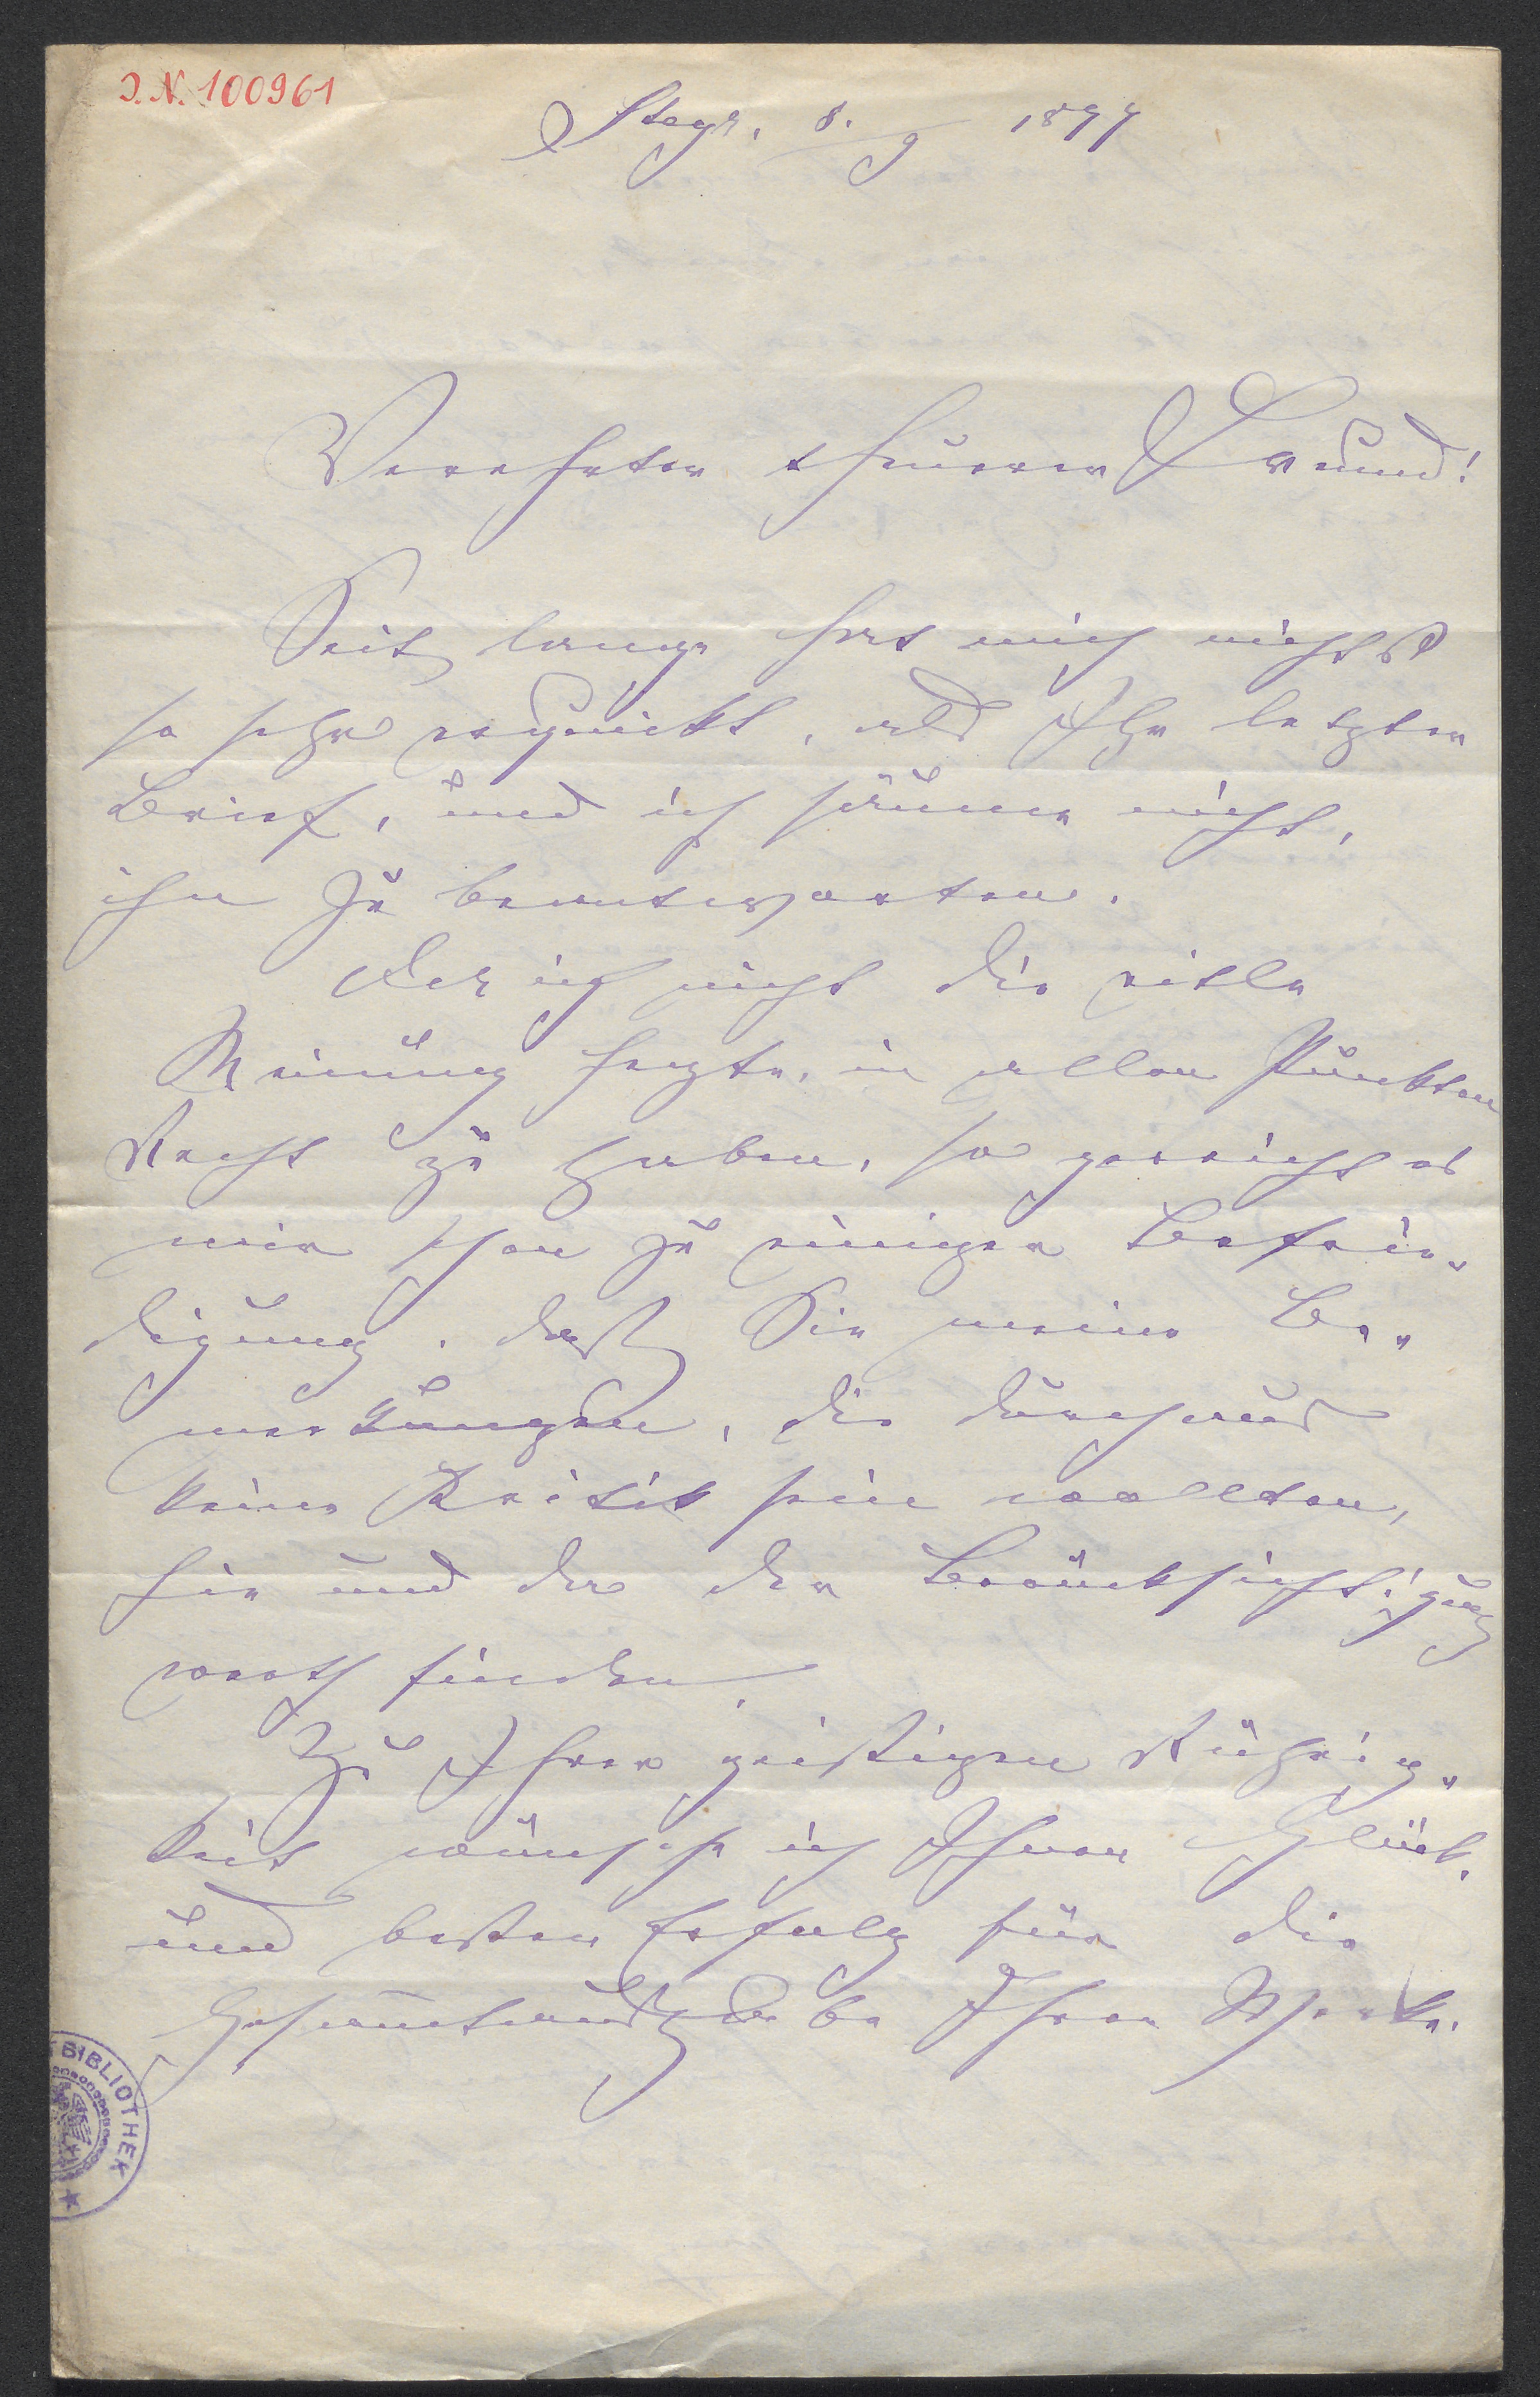 I.N. 100961
Steyr, 8./9 1877
Verehrter theurer Freund!
Seit lange hat mich nichts
so sehr erquickt, als Ihr letzter
Brief, und ich säume nicht,
ihn zu beantworten.
Da ich nicht die eitle
Meinung hegte, in allen Punkten
Recht zu haben, so gereicht es
mir schon zu einiger Befrie-
digung, daß Sie meine Be-
merkungen, die durchaus
keine Kritik sein wollten,
hie und da der Berücksichtigung
werth finden.
Zu Ihrer geistigen Rührig-
keit wünsche ich Ihnen Glück,
und besten Erfolg für die
Gesam̄tausgabe Ihrer Werke.
BIBLIOTHEK